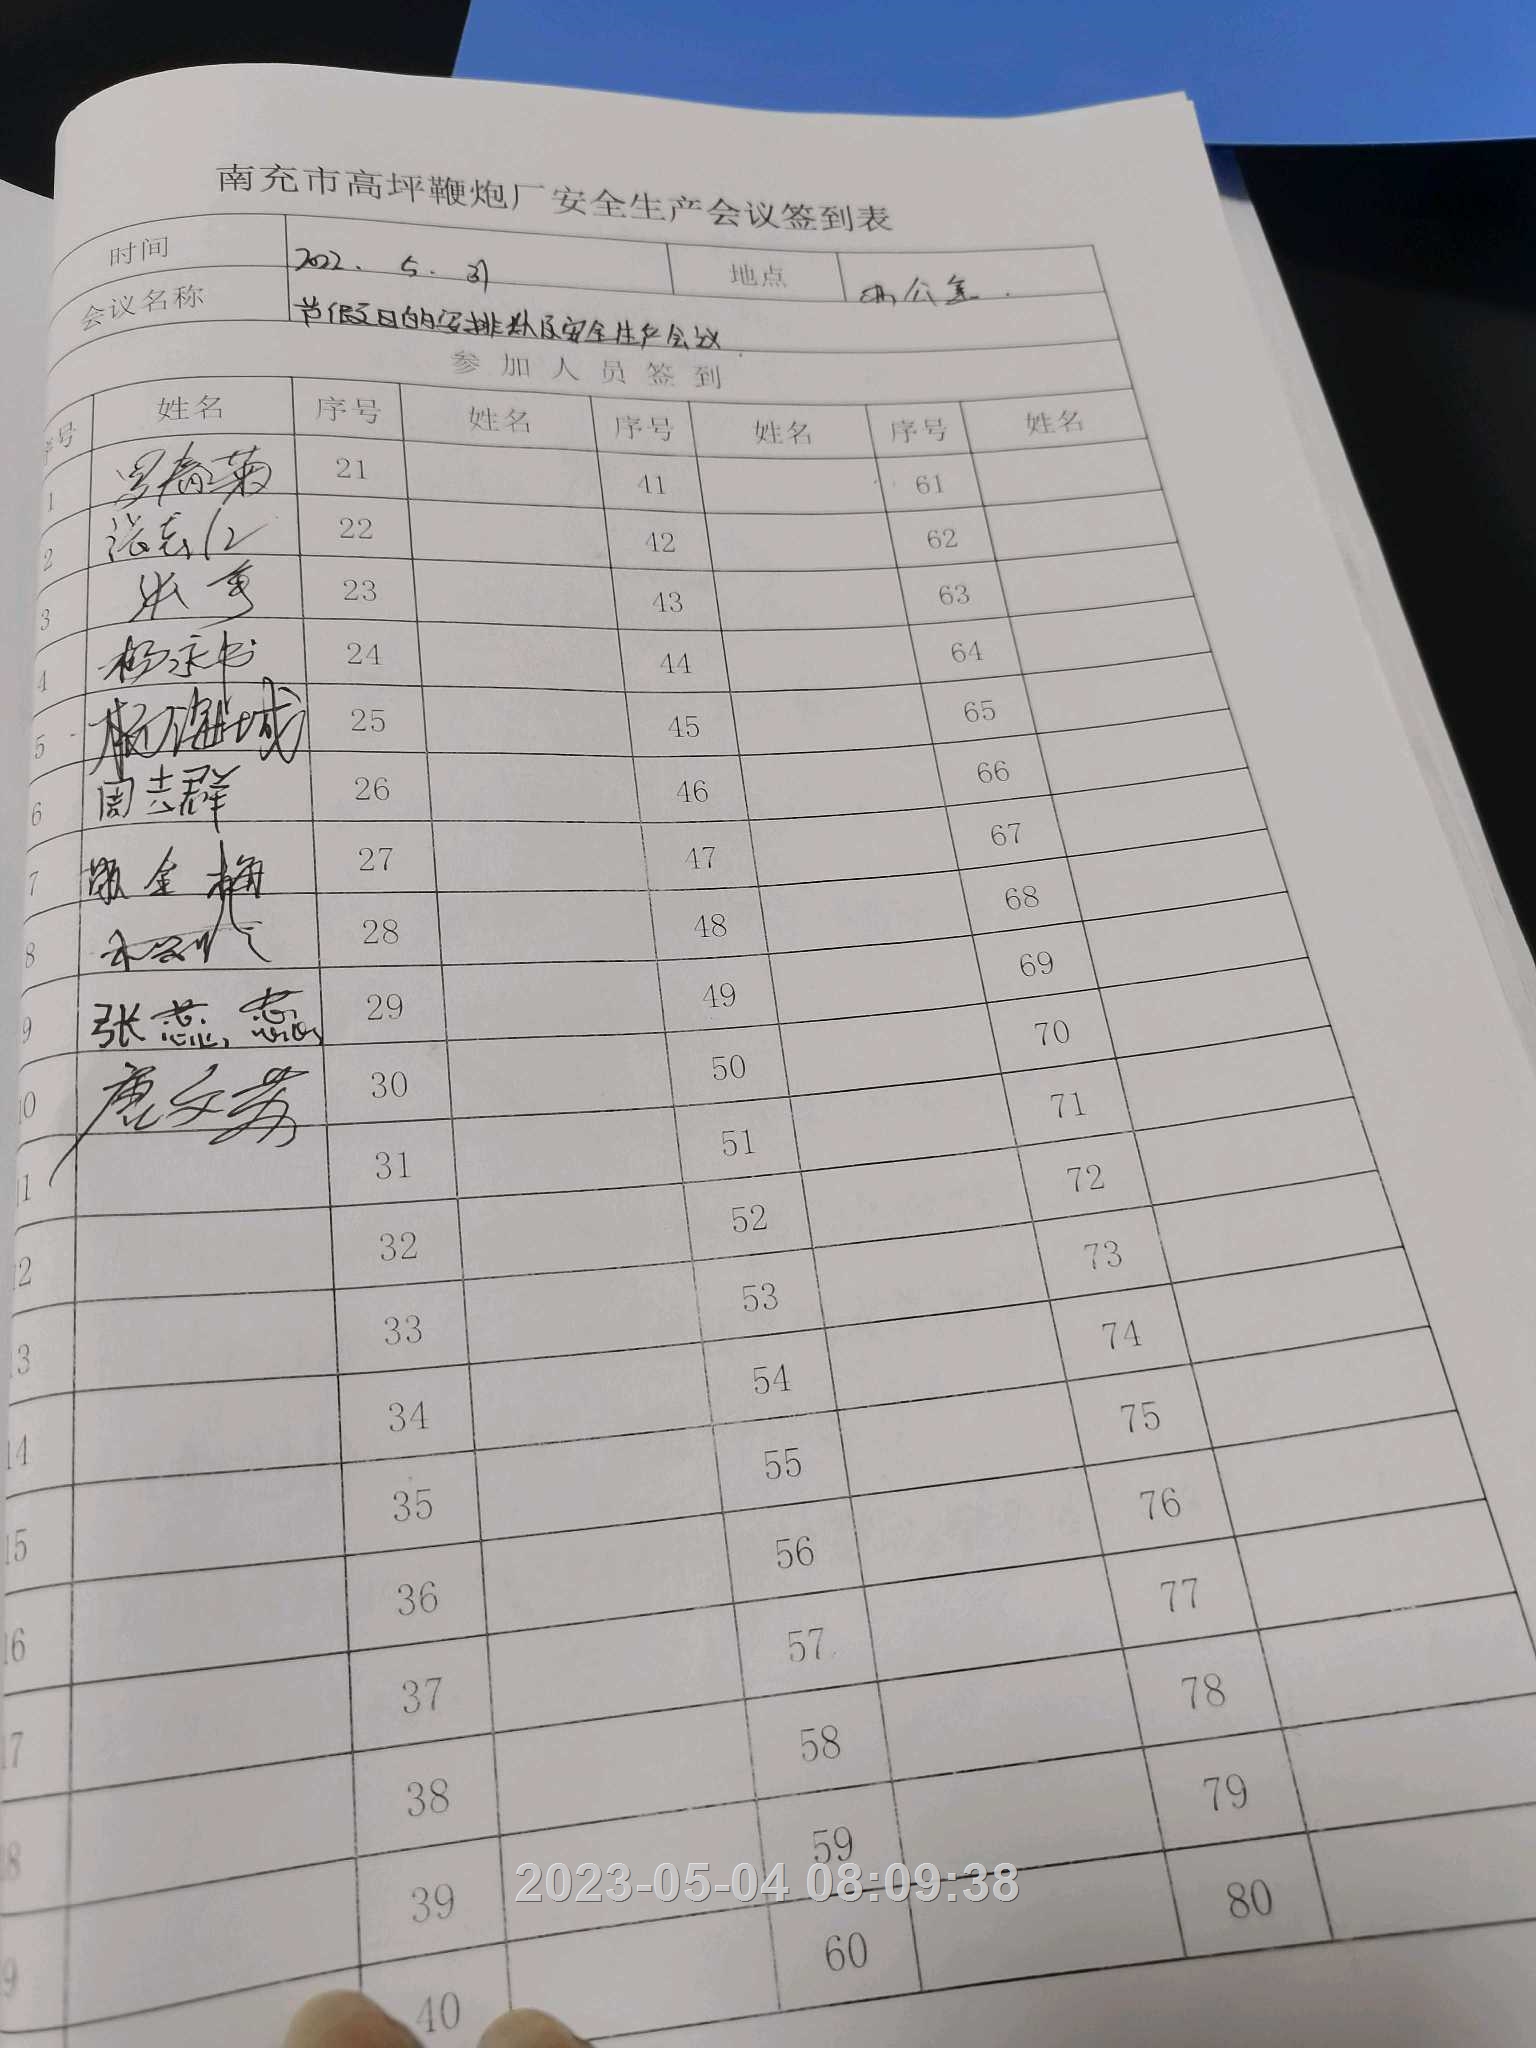 南充市高坪鞭炮厂安全生产会议签到表
时间 2022.5.31 地点 办公室.
会议名称 节假日的安排以及安全生产会议
参加人员签到
序号 姓名 序号 姓名 序号 姓名 序号 姓名
1 罗春菊 21 41 61
2 22 42 62
3 23 43 63
4 杨永书 24 44 64
5 杨海城 25 45 65
6 周志群 26 46 66
7 金梅 27 47 67
8 28 48 68
9 张蕊 29 49 69
10 唐文 30 50 70
11 31 51 71
12 32 52 72
13 33 53 73
14 34 54 74
15 35 55 75
16 36 56 76
17 37 57 77
18 38 58 78
19 39 59 79
40 60 80
2023-05-04 08:09:38